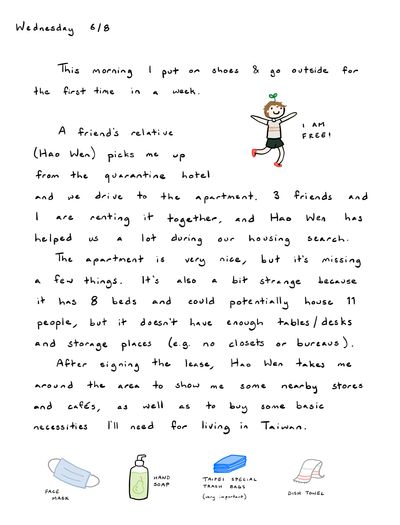 Wednesday 6/8
This morning I put on shoes & go outside for
the first time in a week.
I AM
FREE!
A friend's relative
(Hao Wen) picks me up
from the quarantine hotel
and we drive to the apartment. 3 friends and
I are renting it together, and Hao Wen has
helped us a lot during our housing search.
The apartment is very nice, but it's missing
a few things. It's also a bit strange because
it has 8 beds and could potentially house 11
people, but it doesn't have enough tables/desks
and storage places (e.g. no closets or bureaus).
After signing the lease, Hao Wen takes me
around the area to show me some nearby stores
and cafés, as well as to buy some basic
necessities I'll need for living in Taiwan.
FACE
MASK
HAND
SOAP
TAIPEI SPECIAL
TRASH BAGS
(very important)
DISH TOWEL